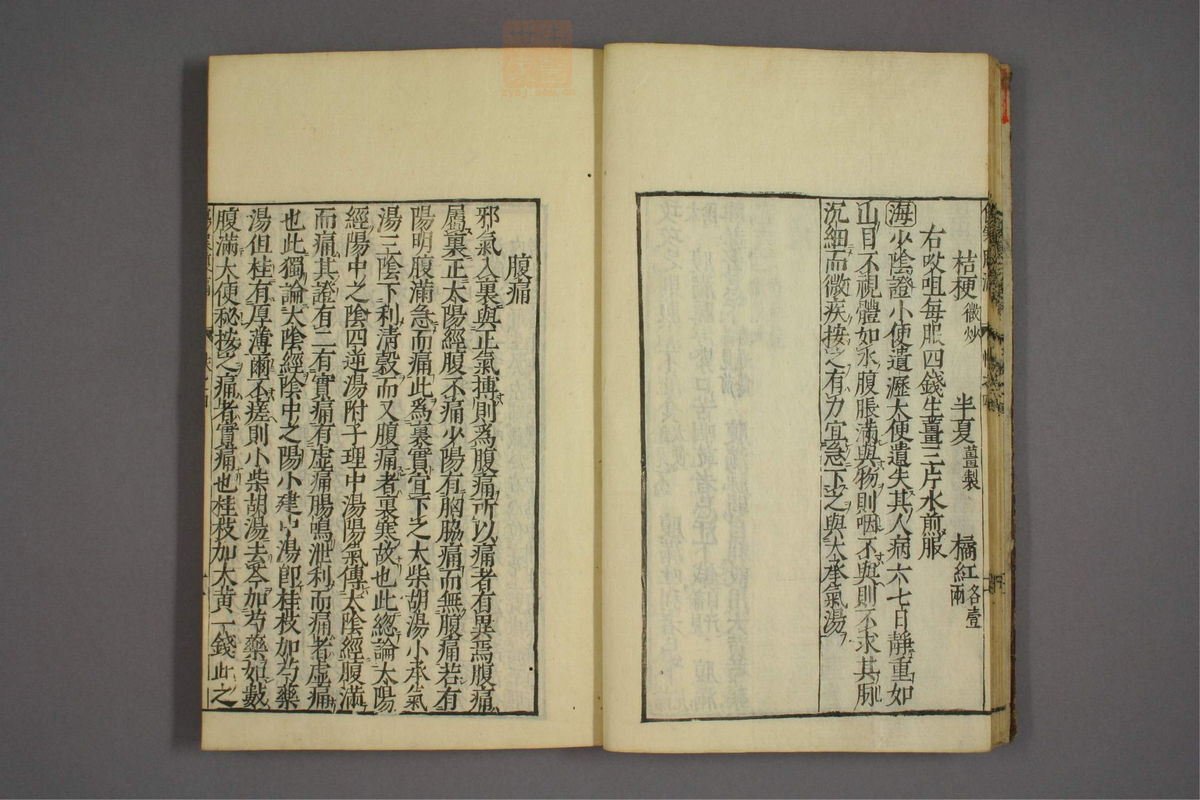 桔梗微炒 半夏薑製 橘紅各壹兩
右㕮咀每服四錢生薑三片水煎服
海少陰證小便遺瀝大便遺失其人病六七日靜重如
山目不視體如氷腹脹滿與物則咽不與則不求其脉
沉細而微疾按之有力宜急下之與大承氣湯
腹痛
邪氣入裏與正氣搏則爲腹痛所以痛者有異焉腹痛
屬裏正太陽經腹不痛少陽有胸脇痛而無腹痛若有
陽明腹滿急而痛此爲裏實宜下之大柴胡湯小承氣
湯三陰下利清穀而又腹痛者裏寒故也此總論太陽
經陽中之陰四逆湯附子理中湯陽氣傳太陰經腹滿
而痛其證有二有實痛有虛痛腸鳴泄利而痛者虛痛
也此獨論太陰經陰中之陽小建中湯卽桂枝加芍藥
湯但桂有厚薄爾不瘥則小柴胡湯去芩加芍藥如數
腹滿大便秘按之痛者實痛也桂枝加大黃一錢此之